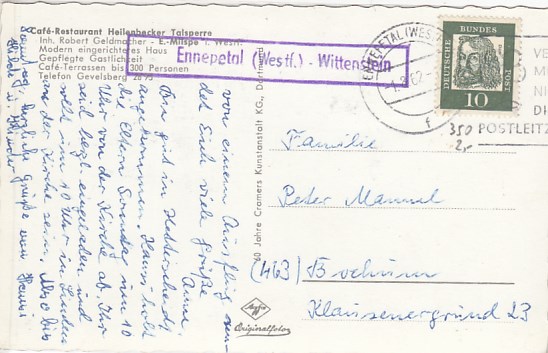 Café-Restaurant Heilenbecker Talsperre
Inh. Robert Geldmacher - E.-Milspe i. Westf.
Modern eingerichtetes Haus
Gepflegte Gastlichkeit
Café-Terrassen bis 300 Personen
Telefon Gevelsberg 28 75
Ennepetal (Westf.) - Wittenstein
ENNEPETAL (WESTF
f
DEUTSCHE BUNDESPOST
10
VE
M
NI
DI
POSTLEITZ
350
2,-
Familie
Peter Mammel
(463) Bochum
Klausenergrund 23
70 Jahre Cramers Kunstanstalt KG., Dortmund
Agfa
Originalfoto
von einem Ausflug sen-
det Euch viele Grüße
Anne.
Bin gut in
angekommen. Hanni holt
die Eltern Sonntag um 10
Uhr von der Kirche ab. Ihr
seid herzl. eingeladen und
sollt um 10 Uhr in Linden
an der Kirche sein. Also bis
Sonntag, herzliche Grüße von Hanni